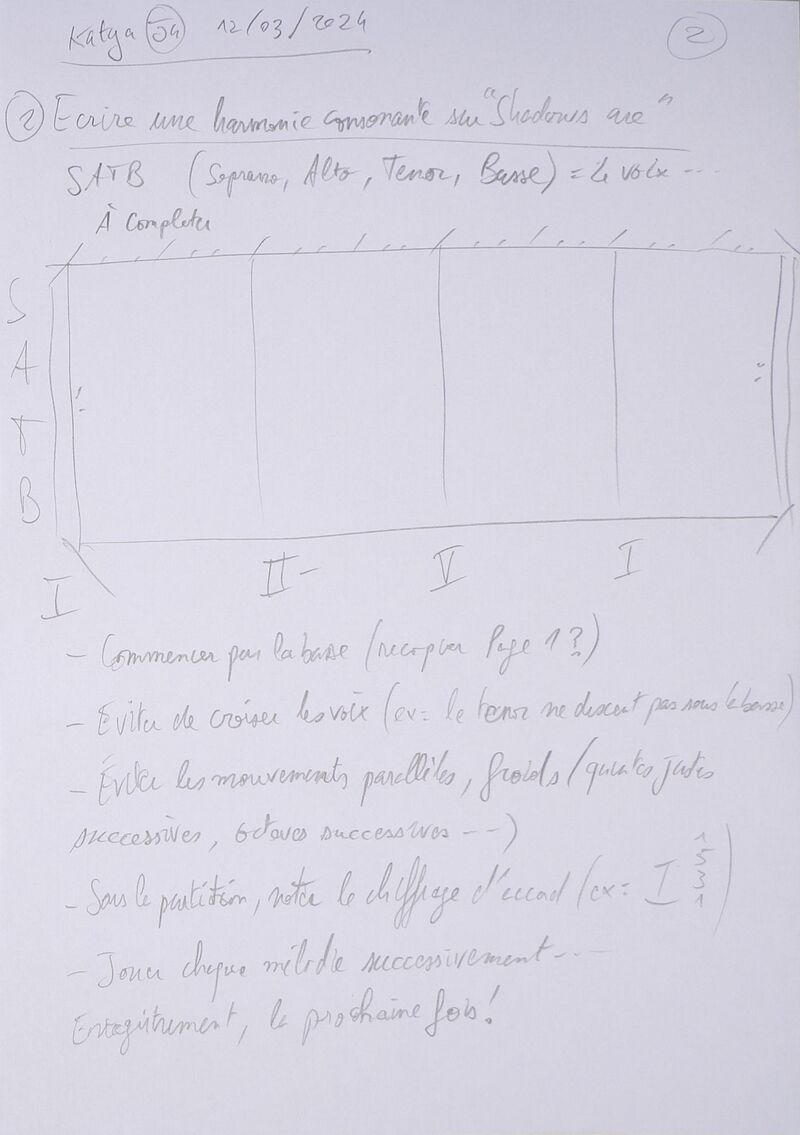 Katya 54 12/03/2024 2
2 Ecrire une harmonie consonante sur "Shadows are"
SATB (Soprano, Alto, Tenor, Basse) = 4 voix ...
À Completer
S
A
T
B
I II- V I
- Commencer par la basse (recopier Page 1?)
- Eviter de croiser les voix (ex= le tenor ne descent pas sous la basse)
- Éviter les mouvements parallèles, froids (quintes justes
successives, octaves successives --)
- Sous la partition, noter le chiffrage d'accord (ex= I 1 5 3 1)
- Jouer chaque mélodie successivement...
Enregistrement, la prochaine fois!